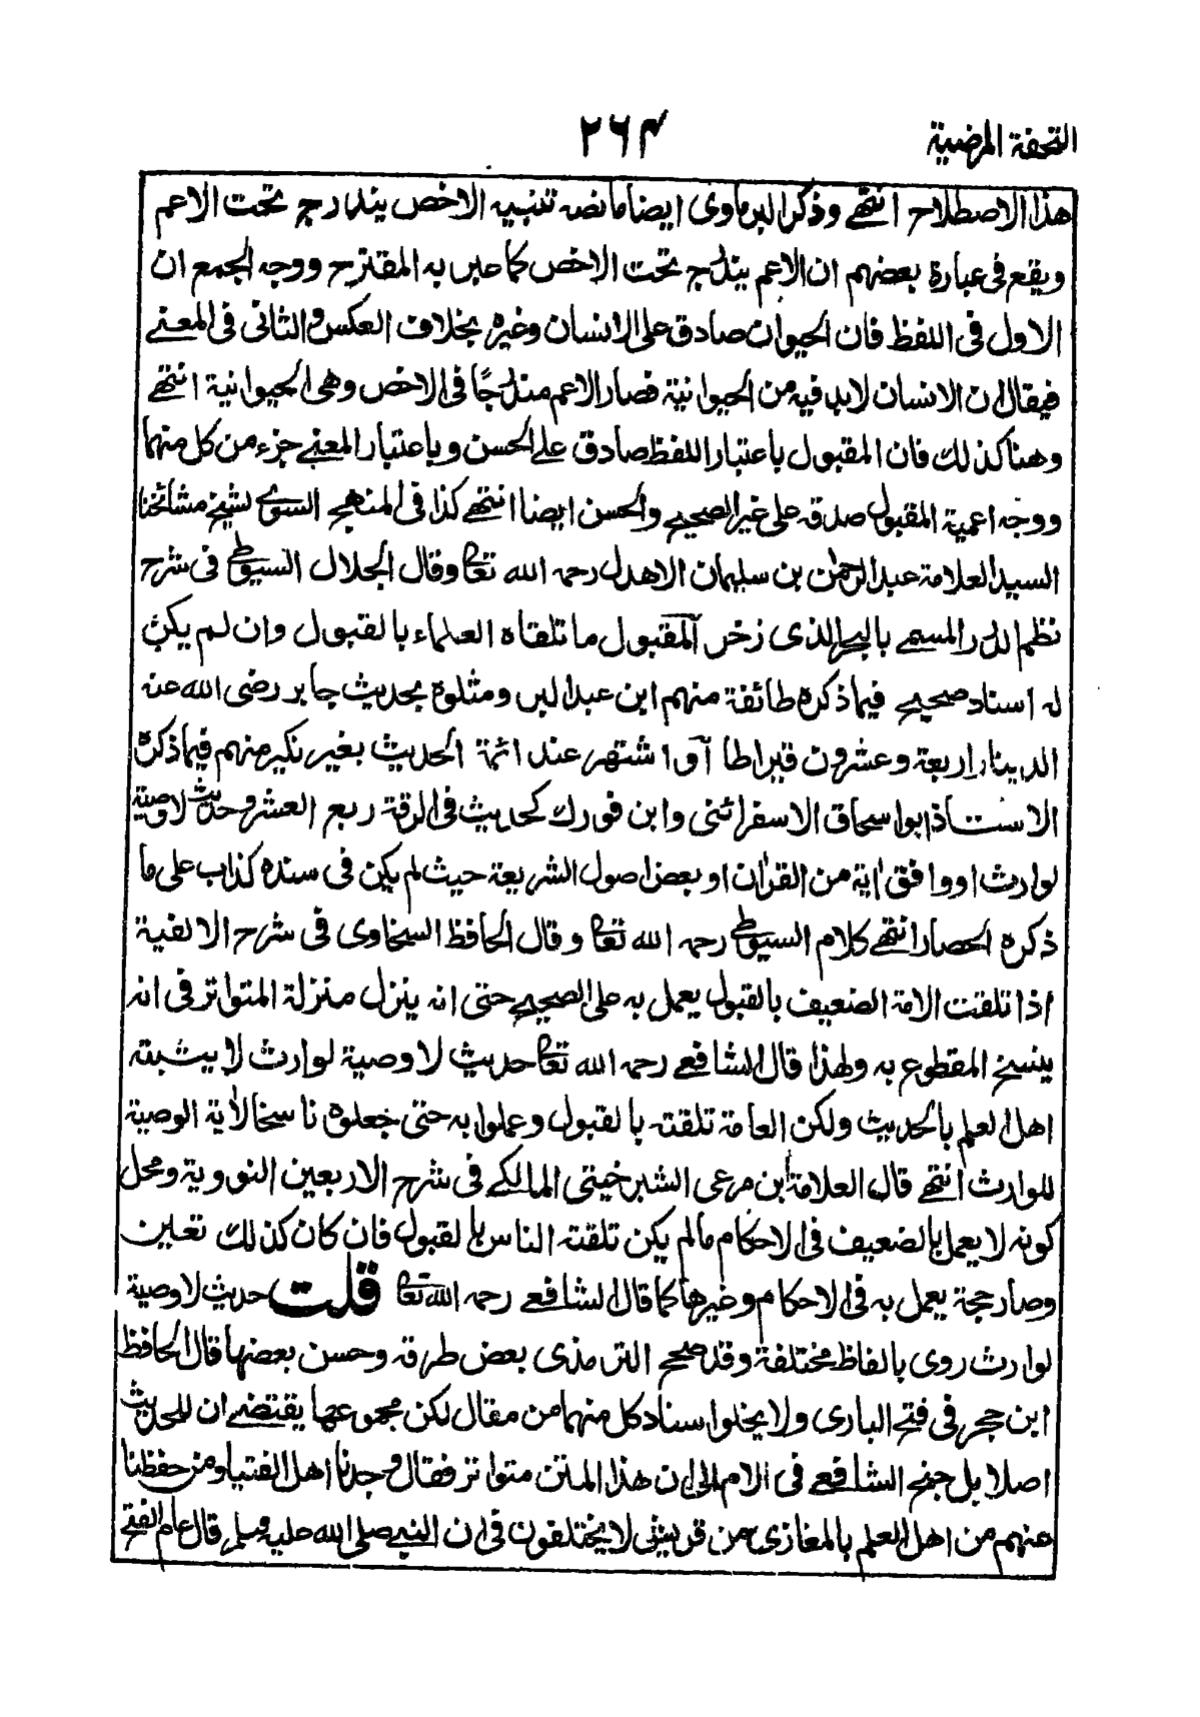 التحفة المرضية
٢٦٤
هذا الاصطلاح انتهى وذكر البرماوى ايضا ما نصه تنبيه الاخص يندرج تحت الاعم
ويقع فى عبارة بعضهم ان الاعم يندرج تحت الاخص كما عبر به المقترح ووجه الجمع ان
الاول فى اللفظ فان الحيوان صادق على الانسان وغيره بخلاف العكس والثانى فى المعنى
فيقال ان الانسان لابد فيه من الحيوانية فصار الاعم مندرجًا فى الاخص وهى الحيوانية انتهى
وهنا كذلك فان المقبول باعتبار اللفظ صادق على الحسن وباعتبار المعنى جزء من كل منهما
ووجه اعمية المقبول صدقه على غير الصحيح والحسن ايضا انتهى كذا فى المنهج السوى لشيخ مشائخنا
السيد العلامة عبد الرحمٰن بن سليمان الاهدل رحمه الله تعالى وقال الجلال السيوطى فى شرح
نظم الدرر المسمى بالبحر الذى زخر المقبول ما تلقاه العلماء بالقبول وان لم يكن
له اسناد صحيح فيما ذكره طائفة منهم ابن عبد البر ومثلوه بحديث جابر رضى الله عنه
الدينار اربعة وعشرون قيراطا او اشتهر عند ائمة الحديث بغير نكير منهم فيما ذكره
الاستاذ ابو اسحاق الاسفرائنى وابن فورك كحديث فى الرقة ربع العشر وحديث لا وصية
لوارث او وافق اٰية من القراٰن او بعض اصول الشريعة حيث لم يكن فى سنده كذاب على ما
ذكره الحصار انتهى كلام السيوطى رحمه الله تعالى وقال الحافظ السخاوى فى شرح الالفية
اذا تلقت الامة الضعيف بالقبول يعمل به على الصحيح حتى انه ينزل منزلة المتواتر فى انه
ينسخ المقطوع به ولهذا قال الشافعى رحمه الله تعالى حديث لا وصية لوارث لا يثبته
اهل العلم بالحديث ولكن العامة تلقته بالقبول وعملوا به حتى جعلوه ناسخا لاٰية الوصية
للوارث انتهى قال العلامة ابن مرعى الشبرخيتى المالكى فى شرح الاربعين النووية ومحل
كونه لا يعمل بالضعيف فى الاحكام ما لم يكن تلقته الناس بالقبول فان كان كذلك تعين
وصار حجة يعمل به فى الاحكام وغيرها كما قال الشافعى رحمه الله تعالى قلت حديث لا وصية
لوارث روى بالفاظ مختلفة وقد صحح الترمذى بعض طرقه وحسن بعضها قال الحافظ
ابن حجر فى فتح البارى ولا يخلوا سناد كل منهما من مقال لكن مجموعها يقتضى ان للحديث
اصلا بل جنح الشافعى فى الام الى ان هذا المتن متواتر فقال وجدنا اهل الفتيا ومن حفظنا
عنهم من اهل العلم بالمغازى من قريش لا يختلفون فى ان النبى صلى الله عليه وسلم قال عام الفتح